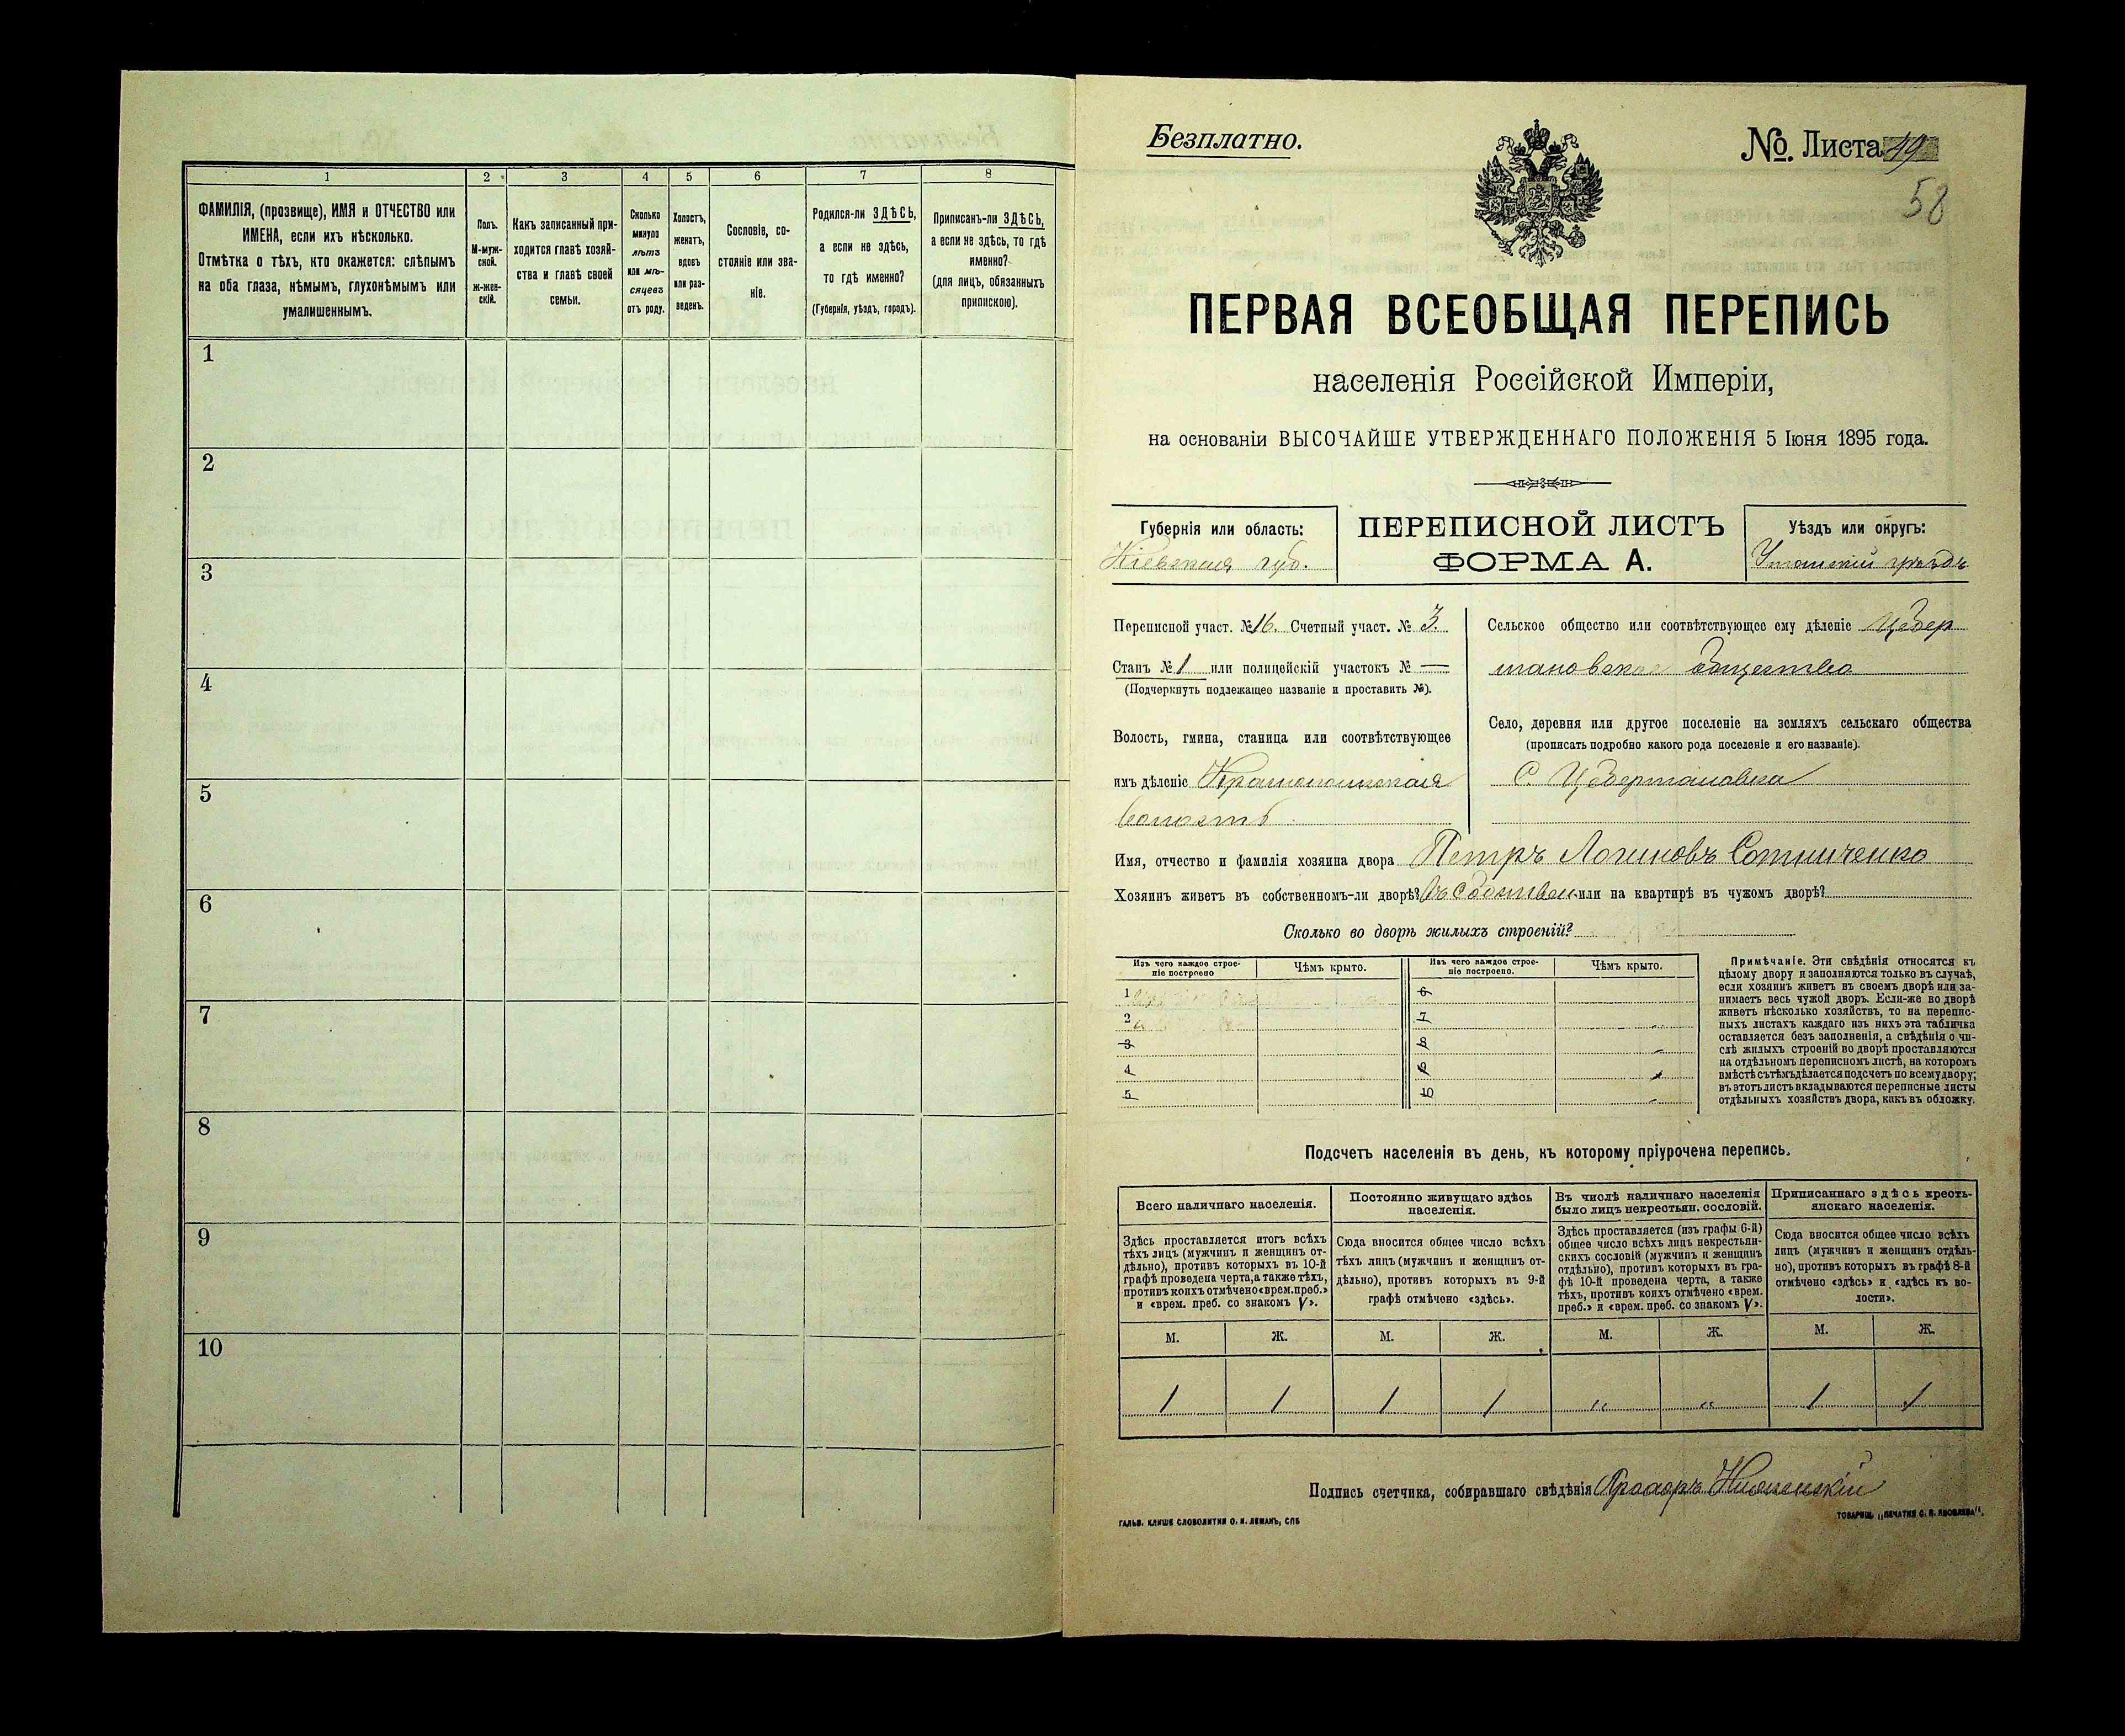 1 2 3 4 5 6 7 8
ФАМИЛІЯ, (прозвище), ИМЯ и ОТЧЕСТВО или
ИМЕНА, если ихъ нѣсколько.
Отмѣтка о тѣхъ, кто окажется: слѣпымъ
на оба глаза, нѣмымъ, глухонѣмымъ или
умалишеннымъ.
Полъ.
М-муж-
ской.
ж-жен-
скій.
Какъ записанный при-
ходится главѣ хозяй-
ства и главѣ своей
семьи.
Сколько
минуло
лѣтъ
или мѣ-
сяцевъ
отъ роду.
Холостъ,
женатъ,
вдовъ
или раз-
веденъ.
Сословіе, со-
стояніе или зва-
ніе.
Родился-ли ЗДѢСЬ,
а если не здѣсь,
то гдѣ именно?
(Губернія, уѣздъ, городъ).
Приписанъ-ли ЗДѢСЬ,
а если не здѣсь, то гдѣ
именно?
(для лицъ, обязанныхъ
припискою).
1
2
3
4
5
6
7
8
9
10
Безплатно.
№. Листа 49
58
ПЕРВАЯ ВСЕОБЩАЯ ПЕРЕПИСЬ
населенія Россійской Имперіи,
на основаніи ВЫСОЧАЙШЕ УТВЕРЖДЕННАГО ПОЛОЖЕНІЯ 5 Іюня 1895 года.
Губернія или область:
Кіевская губ.
ПЕРЕПИСНОЙ ЛИСТЪ
ФОРМА А.
Уѣздъ или округъ:
Уманскій уѣздъ
Переписной участ. № 16. Счетный участ. № 3.
Станъ № 1 или полицейскій участокъ № —
(Подчеркнуть подлежащее названіе и проставить №).
Волость, гмина, станица или соотвѣтствующее
имъ дѣленіе Краснопольская
волость
Сельское общество или соотвѣтствующее ему дѣленіе Цебер
мановское общество
Село, деревня или другое поселеніе на земляхъ сельскаго общества
(прописать подробно какого рода поселеніе и его названіе).
С. Цебермановка
Имя, отчество и фамилія хозяина двора Петръ Логиновъ Сотниченко
Хозяинъ живетъ въ собственномъ-ли дворѣ? Въ собствен. или на квартирѣ въ чужомъ дворѣ?
Сколько во дворѣ жилыхъ строеній?
Изъ чего каждое строе-
ніе построено
Чѣмъ крыто.
Изъ чего каждое строе-
ніе построено.
Чѣмъ крыто.
1
2
3
4
5
6
7
8
9
10
Примѣчаніе. Эти свѣдѣнія относятся къ
цѣлому двору и заполняются только въ случаѣ,
если хозяинъ живетъ въ своемъ дворѣ или за-
нимаетъ весь чужой дворъ. Если-же во дворѣ
живетъ нѣсколько хозяйствъ, то на перепис-
ныхъ листахъ каждаго изъ нихъ эта табличка
оставляется безъ заполненія, а свѣдѣнія о чи-
слѣ жилыхъ строеній во дворѣ проставляются
на отдѣльномъ переписномъ листѣ, на которомъ
вмѣстѣ съ тѣмъ дѣлается подсчетъ по всему двору;
въ этотъ листъ вкладываются переписные листы
отдѣльныхъ хозяйствъ двора, какъ въ обложку.
Подсчетъ населенія въ день, къ которому пріурочена перепись.
Всего наличнаго населенія.
Здѣсь проставляется итогъ всѣхъ
тѣхъ лицъ (мужчинъ и женщинъ от-
дѣльно), противъ которыхъ въ 10-й
графѣ проведена черта, а также тѣхъ,
противъ коихъ отмѣчено «врем. преб.»
и «врем. преб. со знакомъ V».
Постоянно живущаго здѣсь
населенія.
Сюда вносится общее число всѣхъ
тѣхъ лицъ (мужчинъ и женщинъ от-
дѣльно), противъ которыхъ въ 9-й
графѣ отмѣчено «здѣсь».
Въ числѣ наличнаго населенія
было лицъ некрестьян. сословій.
Здѣсь проставляется (изъ графы 6-й)
общее число всѣхъ лицъ некрестьян-
скихъ сословій (мужчинъ и женщинъ
отдѣльно), противъ которыхъ въ гра-
фѣ 10-й проведена черта, а также
тѣхъ, противъ коихъ отмѣчено «врем.
преб.» и «врем. преб. со знакомъ V».
Приписаннаго здѣсь кресть-
янскаго населенія.
Сюда вносится общее число всѣхъ
лицъ (мужчинъ и женщинъ отдѣль-
но), противъ которыхъ въ графѣ 8-й
отмѣчено «здѣсь» и «здѣсь къ во-
лости».
М. Ж. М. Ж. М. Ж. М. Ж.
1 1 1 1 „ „ 1 1
Подпись счетчика, собиравшаго свѣдѣнія Прохоръ
ГАЛЬВ. КЛИШЕ СЛОВОЛИТНИ О. И. ЛЕМАНЪ, СПБ
ТОВАРИЩ. „ПЕЧАТНЯ С. П. ЯКОВЛЕВА".